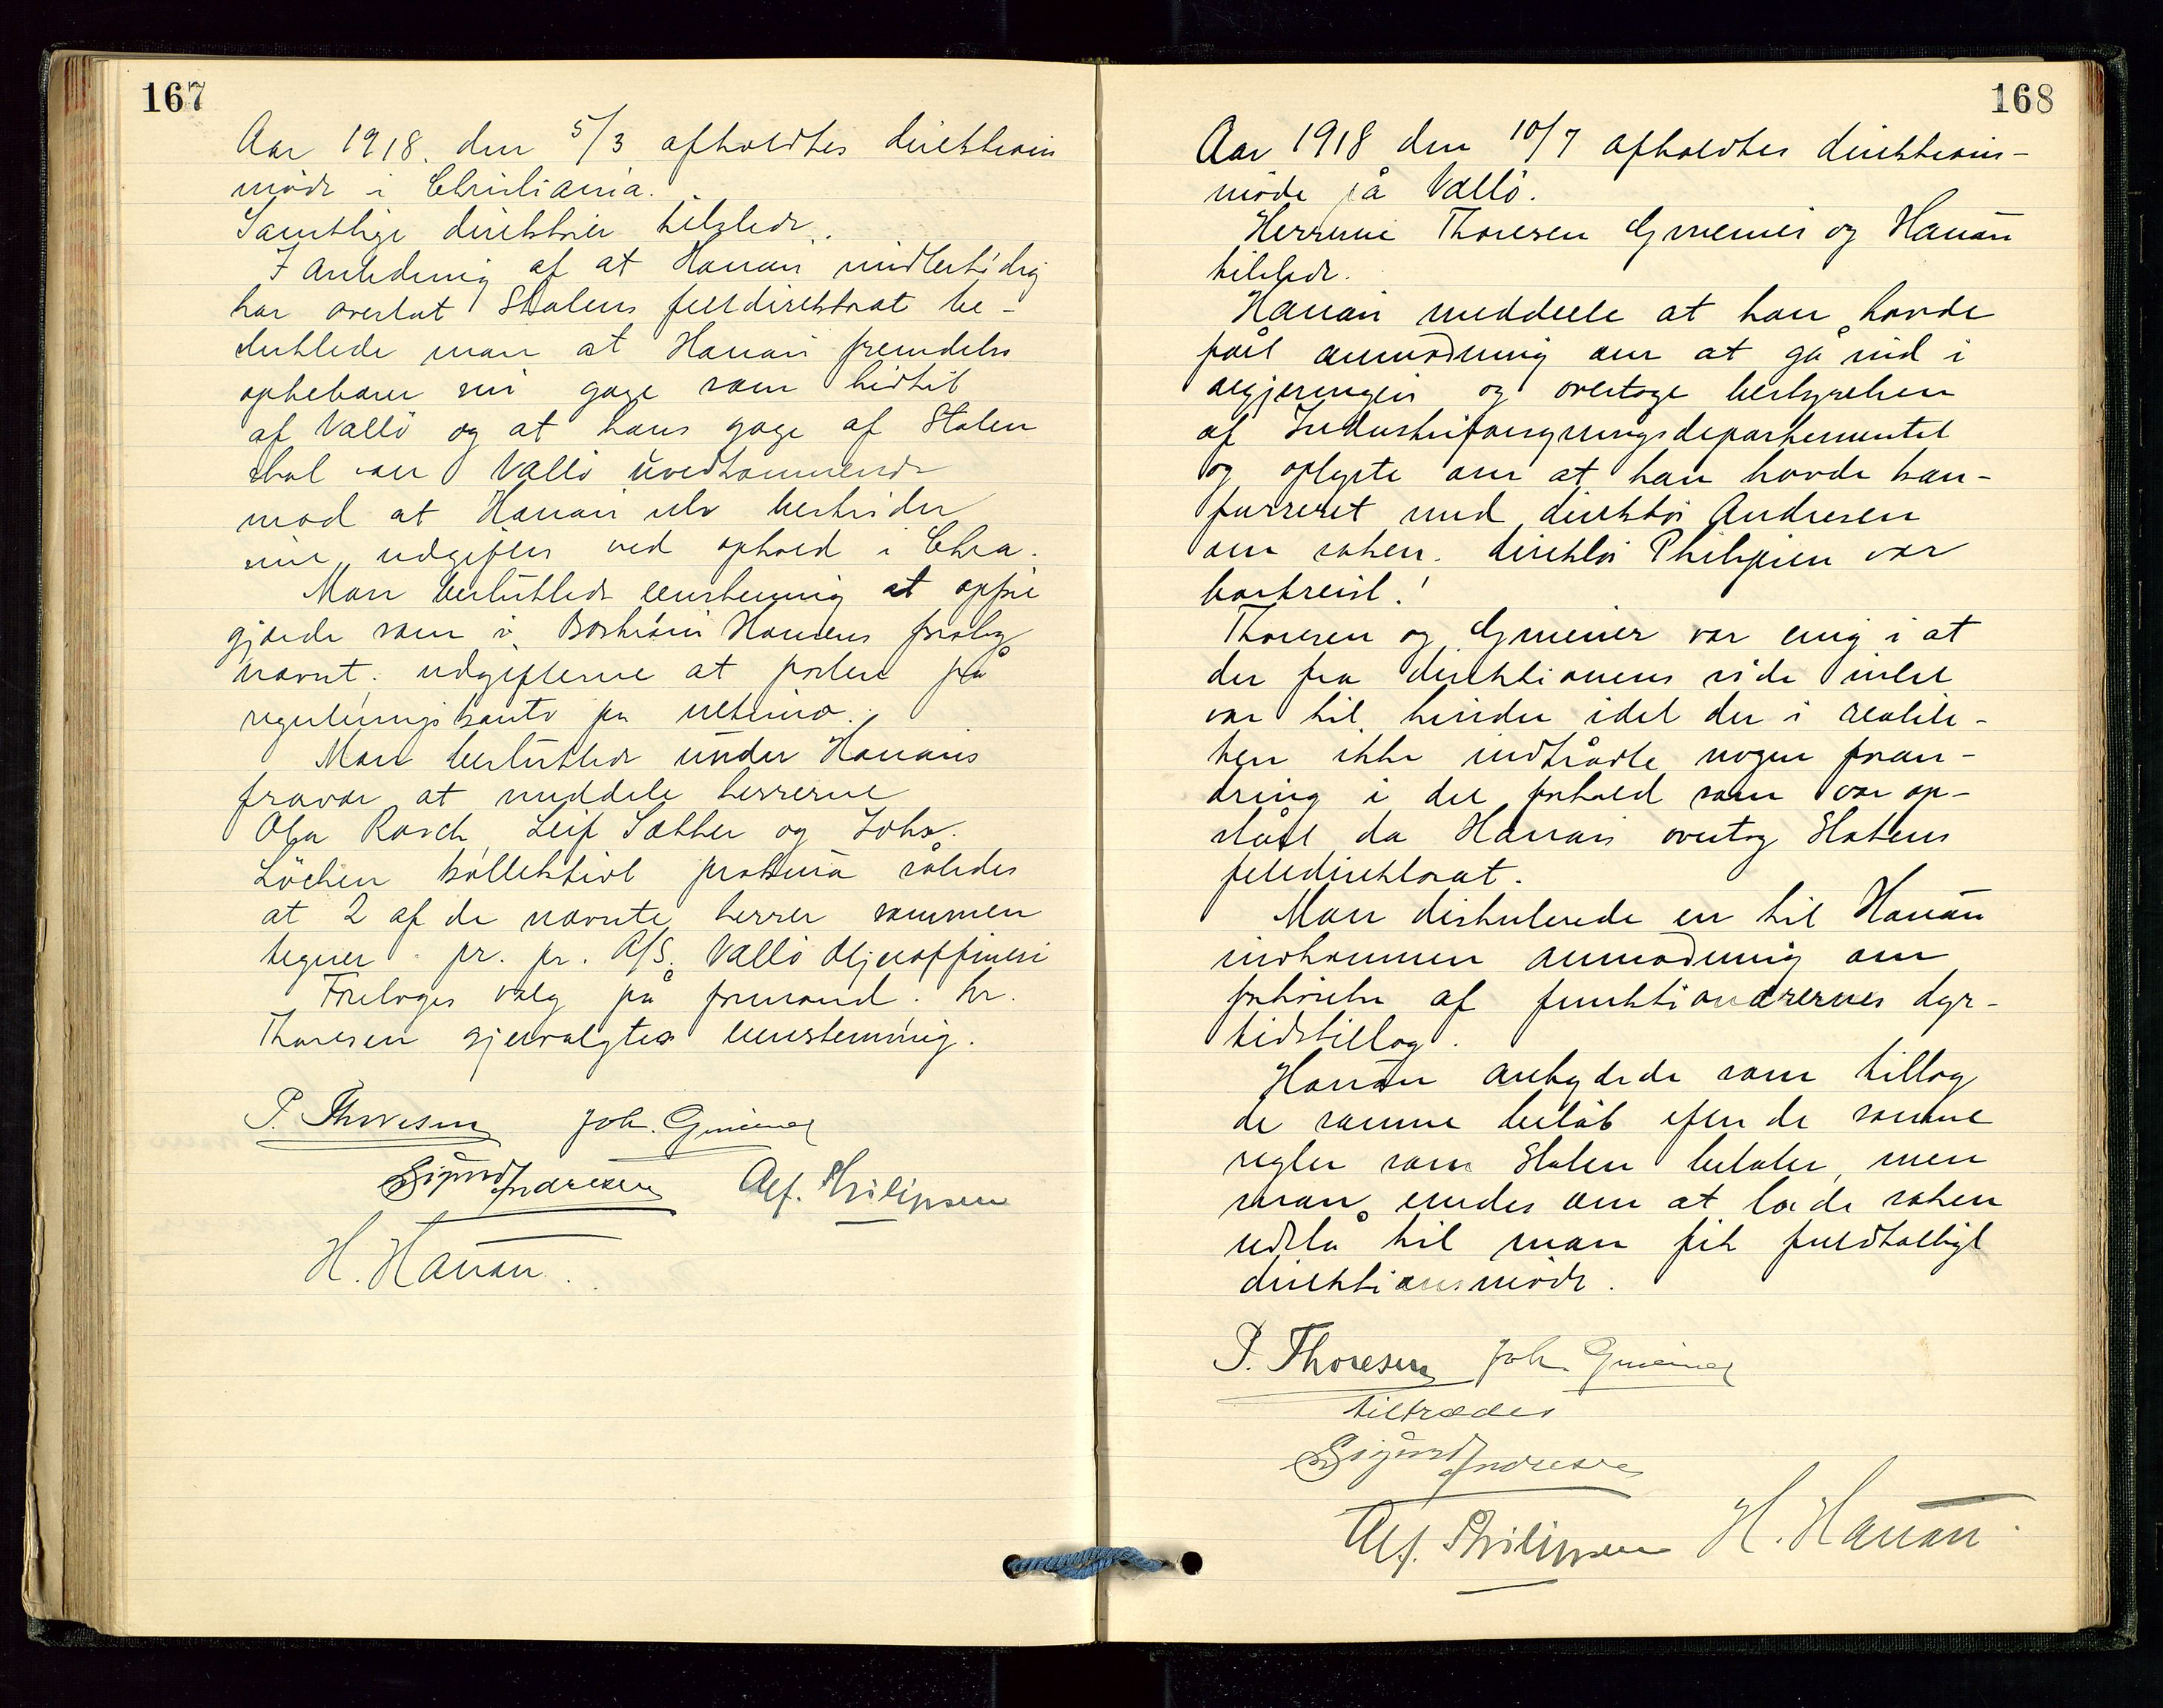 167
Aar 1918. den 5/3 afholdtes direktions
möde i Christiania.
Samtlige direktører tilstede.
I Anledning af at Hanan midlertidig
har overtat Statens fettdirektorat be-
sluttede man at Hanan fremdeles
oppebærer sin gage som hidtil
af Vallö og at hans gage af Staten
skal være Vallö uvedkommende
mod at Hanan selv bestrider
sine udgifter ved ophold i Chra.
Man besluttede eenstemmig at oppre
gjærde som i Hansens forslag
nævnt. udgifterne at postere på
reguleringskonto pr ultimo.
Man besluttede under Hanans
fravær at meddele herrerne
Olga Rasch, Leif Sæther og Johs.
Löchen kollektivt prokura således
at 2 af de nævnte herrer sammen
tegner pr. pr. A/S. Vallö Oljeraffineri
Foretoges valg på formand. hr.
Thoresen gjenvalgtes eenstemmig.
P. Thoresen Joh. Gmeiner
Sigurd Andresen Alf. Philipsen
H. Hanan.
168
Aar 1918 den 10/7 afholdtes direktions-
möde på Vallö.
Herrerne Thoresen Gmeiner og Hanan
tilstede.
Hanan meddelte at han havde
fåt anmodning om at gå ind i
regjeringen og overtage bestyrelsen
af Industriforsyningsdepartementet
og oplyste om at han havde kon-
ferreret med direktör Andresen
om saken. direktör Philipsen var
bortreist!
Thoresen og Gmeiner var enig i at
der fra direktionens side intet
var til hinder idet der i realite-
ten ikke indtrådte nogen foran-
dring i det forhold som var op-
ståt da Hanan overtog Statens
fettdirektorat.
Man diskuterede en til Hanan
indkommen anmodning om
forhöielse af funktionærernes dyr-
tidstillæg.
Hanan antydede som tillæg
de samme belöb efter de samme
regler som Staten betaler, men
man enedes om at lade saken
udstå til man fik fuldtalligt
direktionsmöde.
P. Thoresen Joh. Gmeiner
tiltrædes
Sigurd Andresen
Alf. Philipsen H. Hanan.